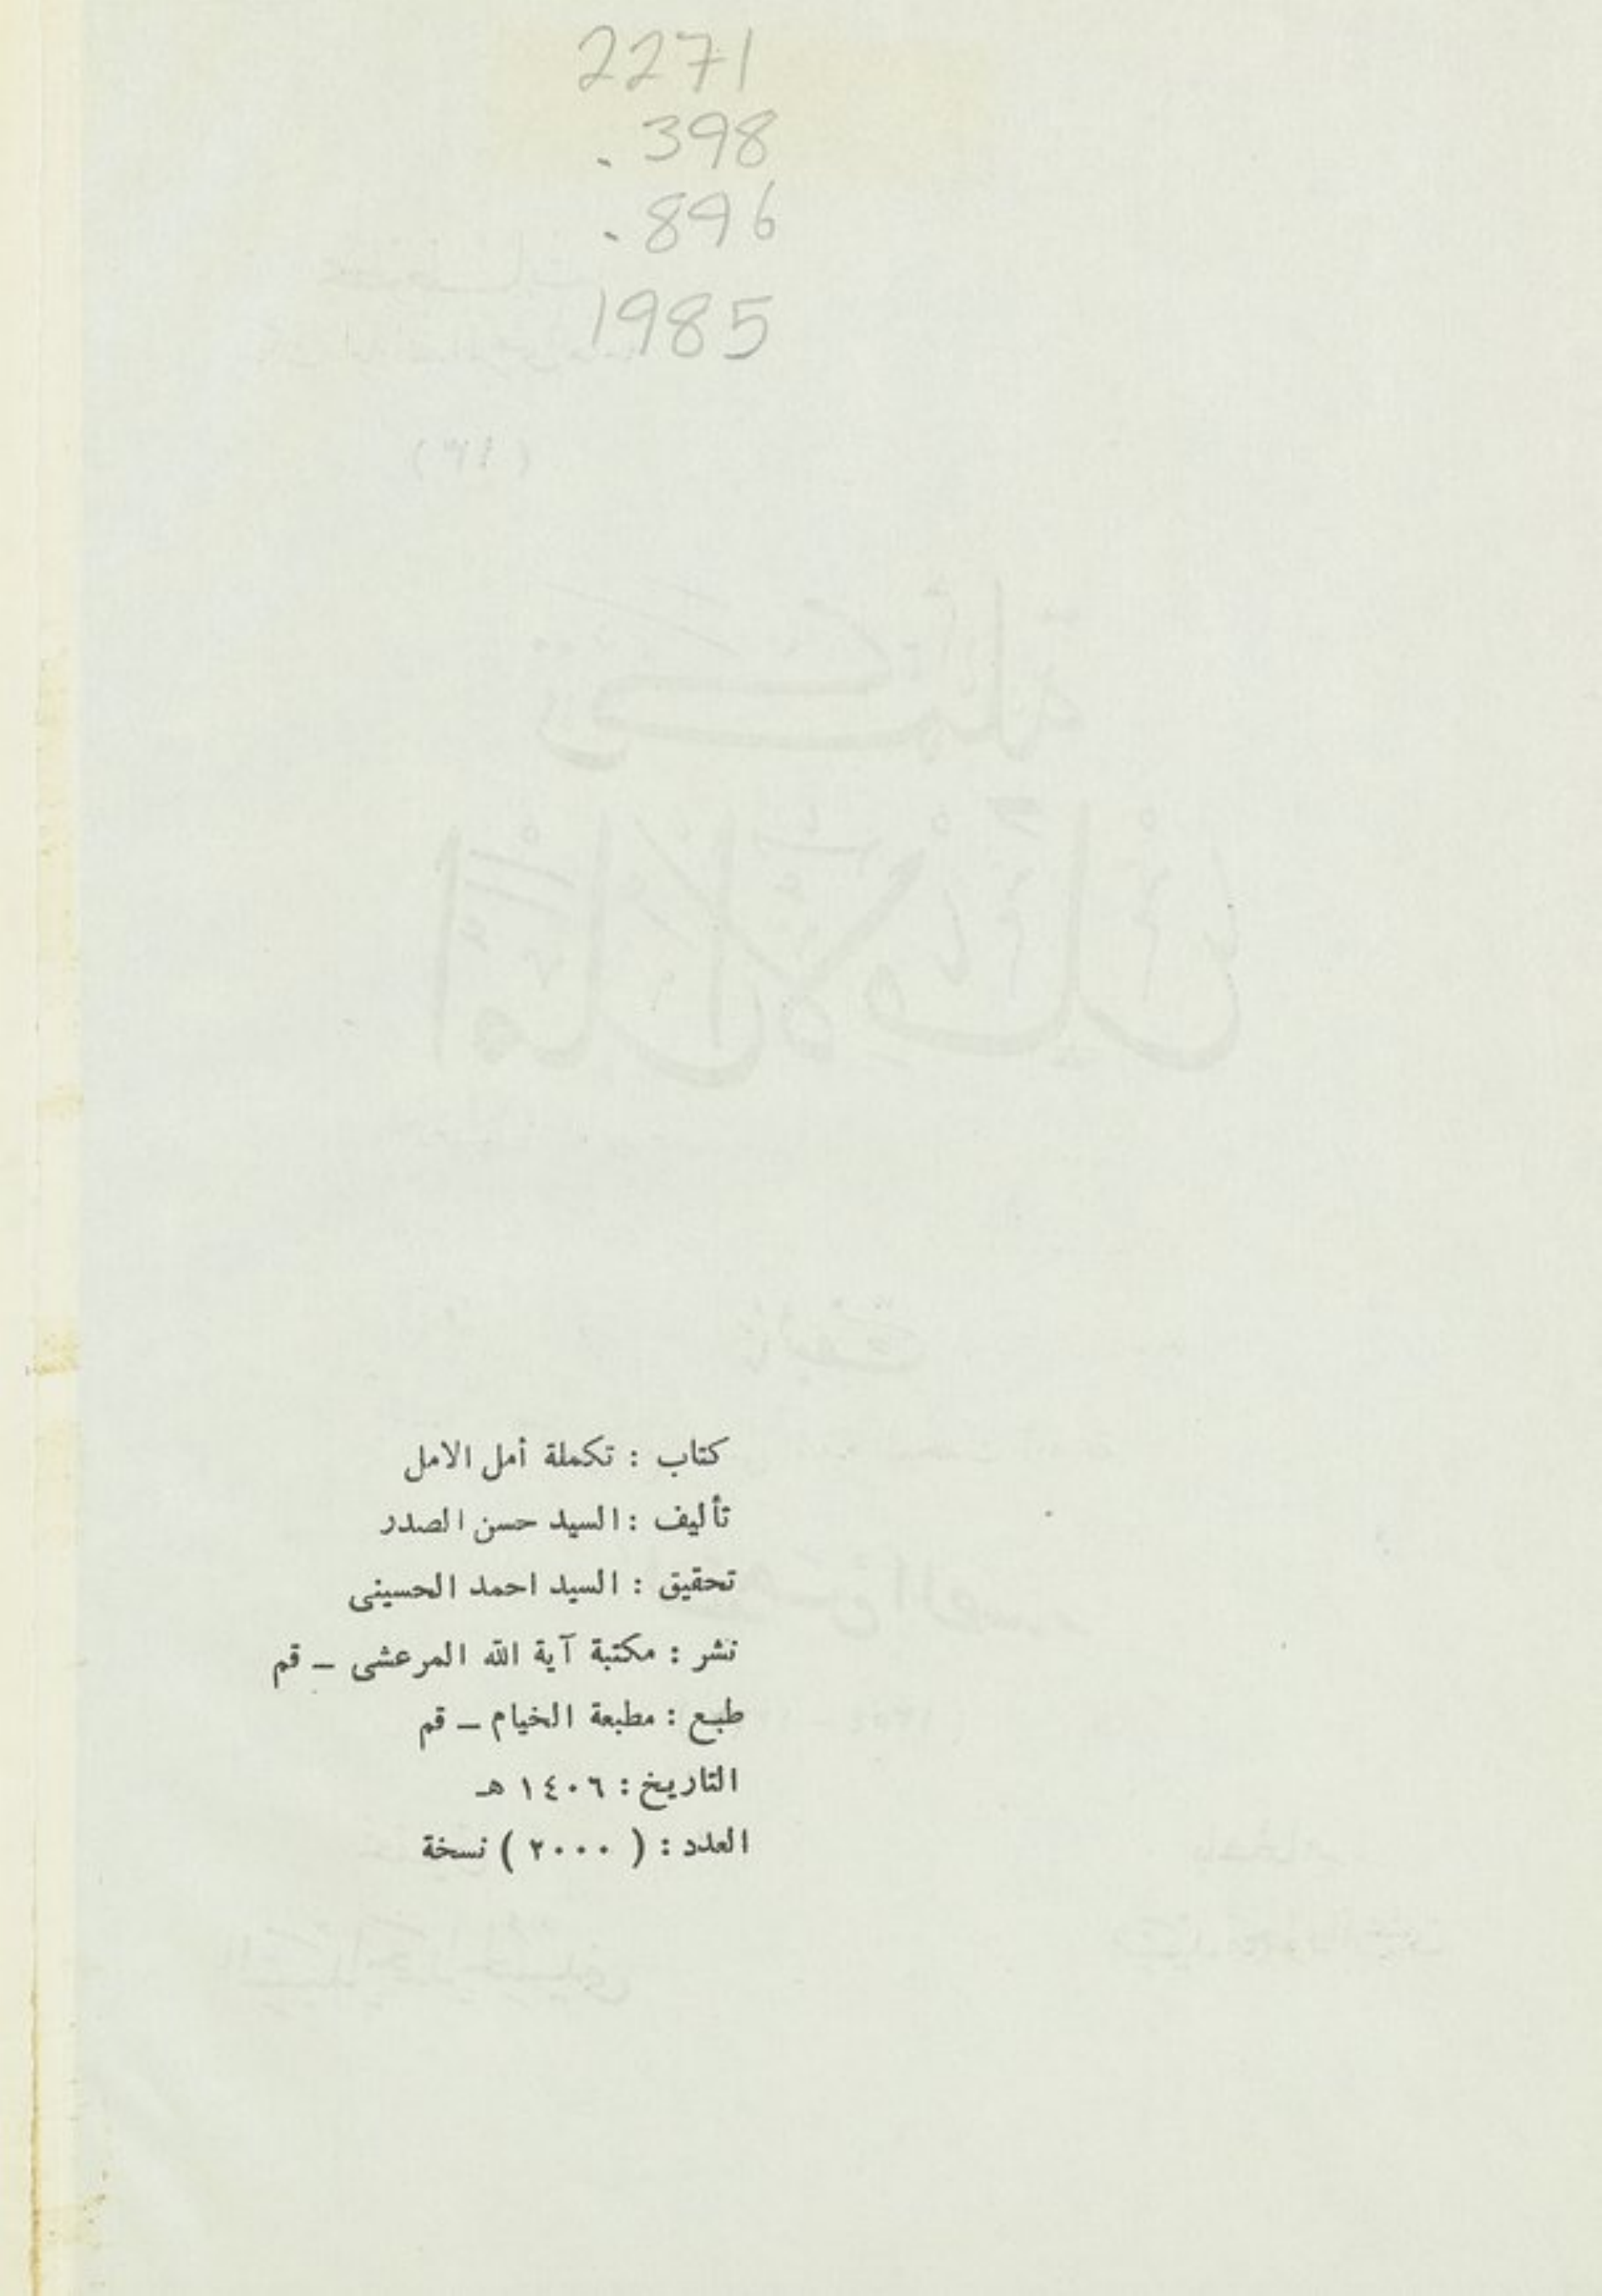 2271
.398
.896
1985
كتاب : تكملة أمل الامل
تأليف : السيد حسن الصدر
تحقيق : السيد احمد الحسينى
نشر : مكتبة آية الله المرعشى – قم
طبع : مطبعة الخيام – قم
التاريخ : ١٤٠٦ هـ
العدد : ( ٢٠٠٠ ) نسخة